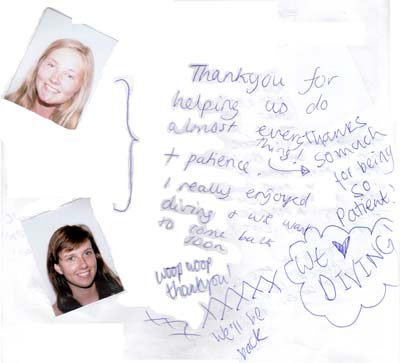 Thankyou for
helping us do
almost everything!
+ patience.
I really enjoyed
diving & we want
to come back
soon
Thanks
so much
for being
so
patient!
woop woop
thankyou!
xx XXXXX
We'll be
back
WE ♥
DIVING!